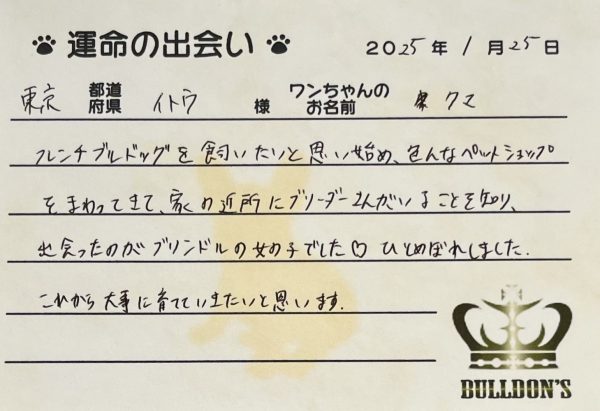 運命の出会い 2025年1月25日
東京 都道府県 イトウ 様 ワンちゃんのお名前 クマ
フレンチブルドッグを飼いたいと思い始め、色んなペットショップ
をまわってきて、家の近所にブリーダーさんがいることを知り、
出会ったのがブリンドルの女の子でした♡ ひとめぼれしました.
これから大事に育てていきたいと思います.
BULLDON'S